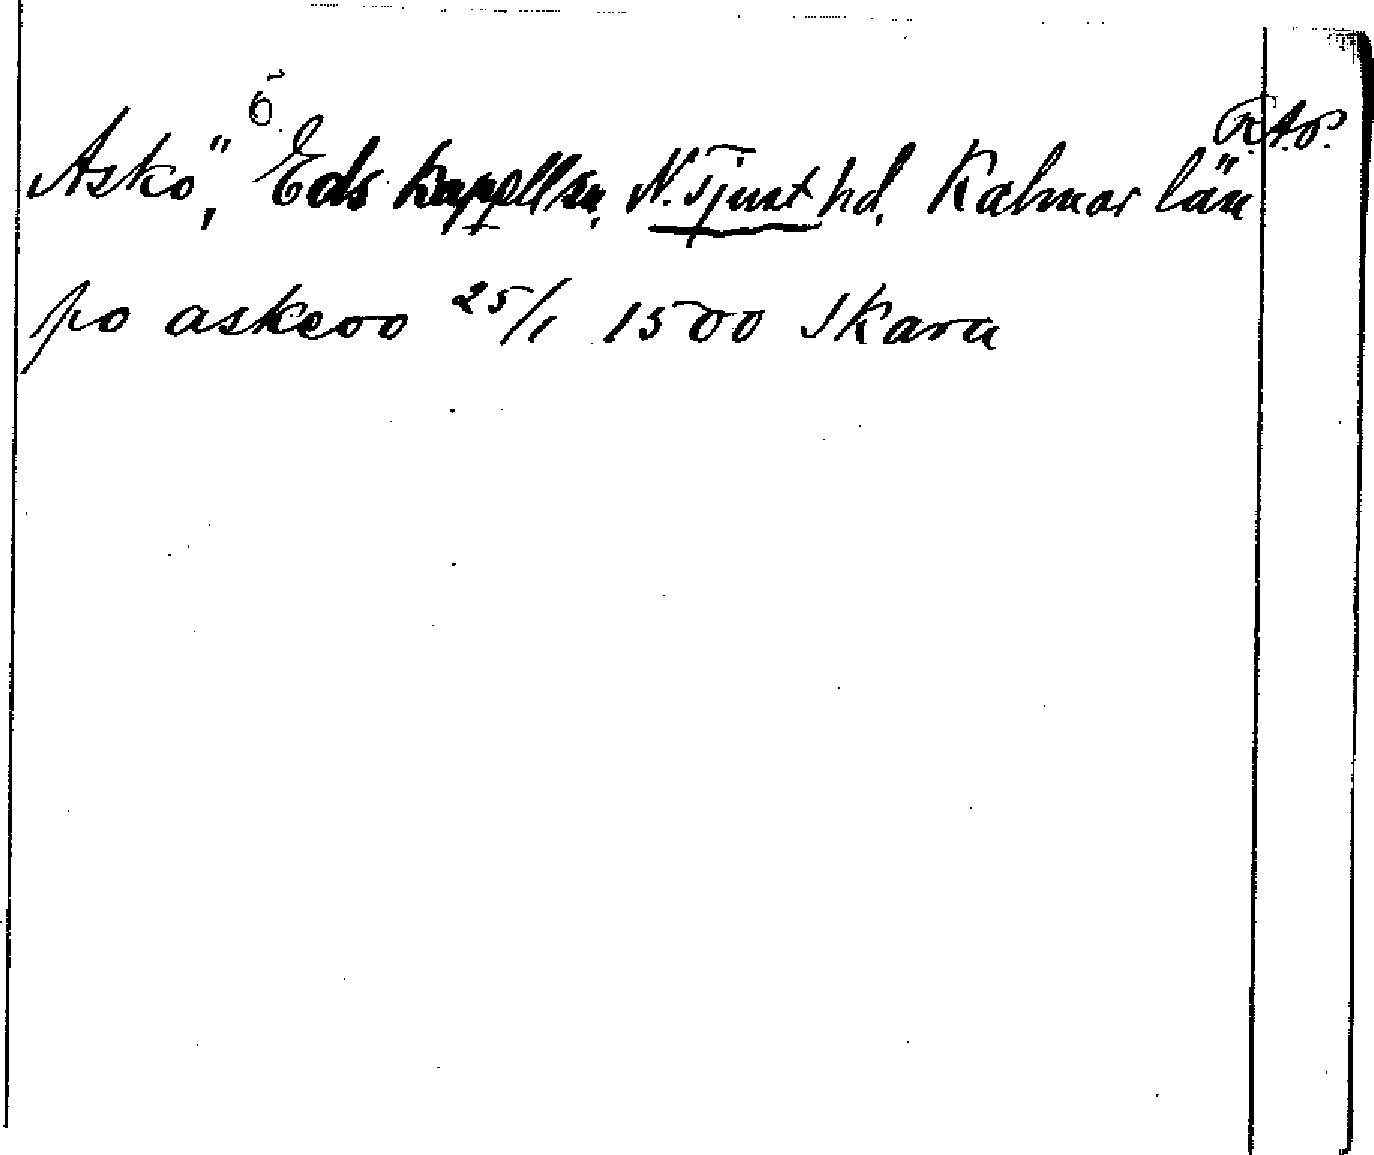 ö
R.A.P.
Askö, Eds kapellsn, N. Tjust hd, Kalmar län
po askeoo 25/1 1500 Skara